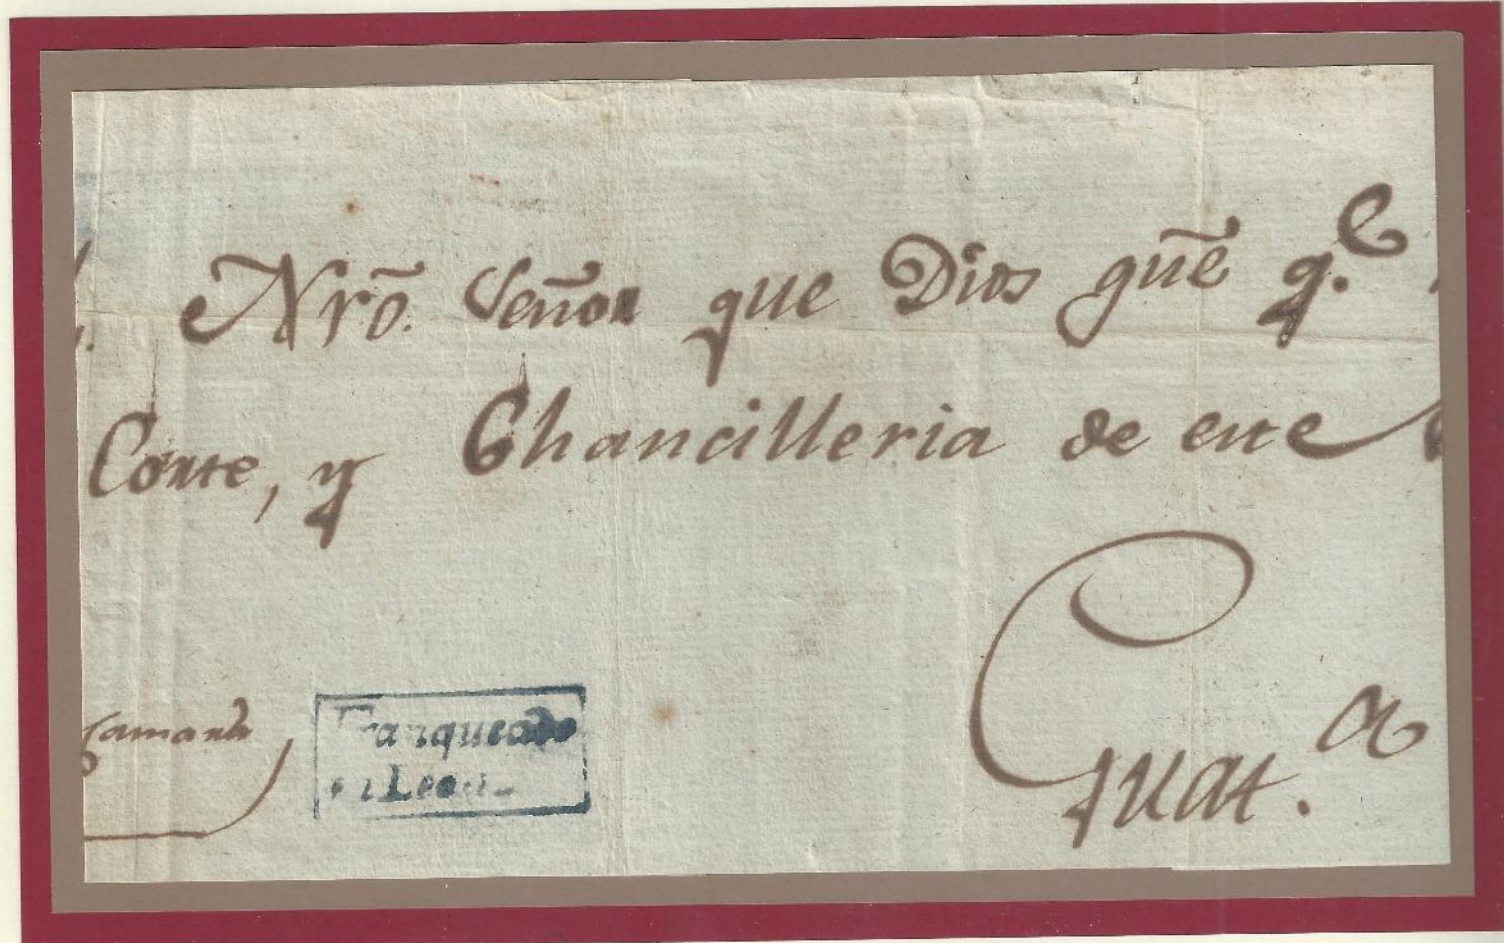 Nrō. Señor que Dios gūe q.e
Corte, y Chancilleria de este
Guat.a
Franqueado
en Leon